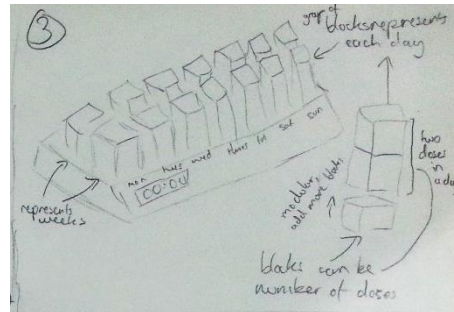 3
group of
blocks represents
each day
mon tues wed thurs fri sat sun
00:00
represents
weeks
two
doses
in a day
modular,
add more blocks
blocks can be
number of doses